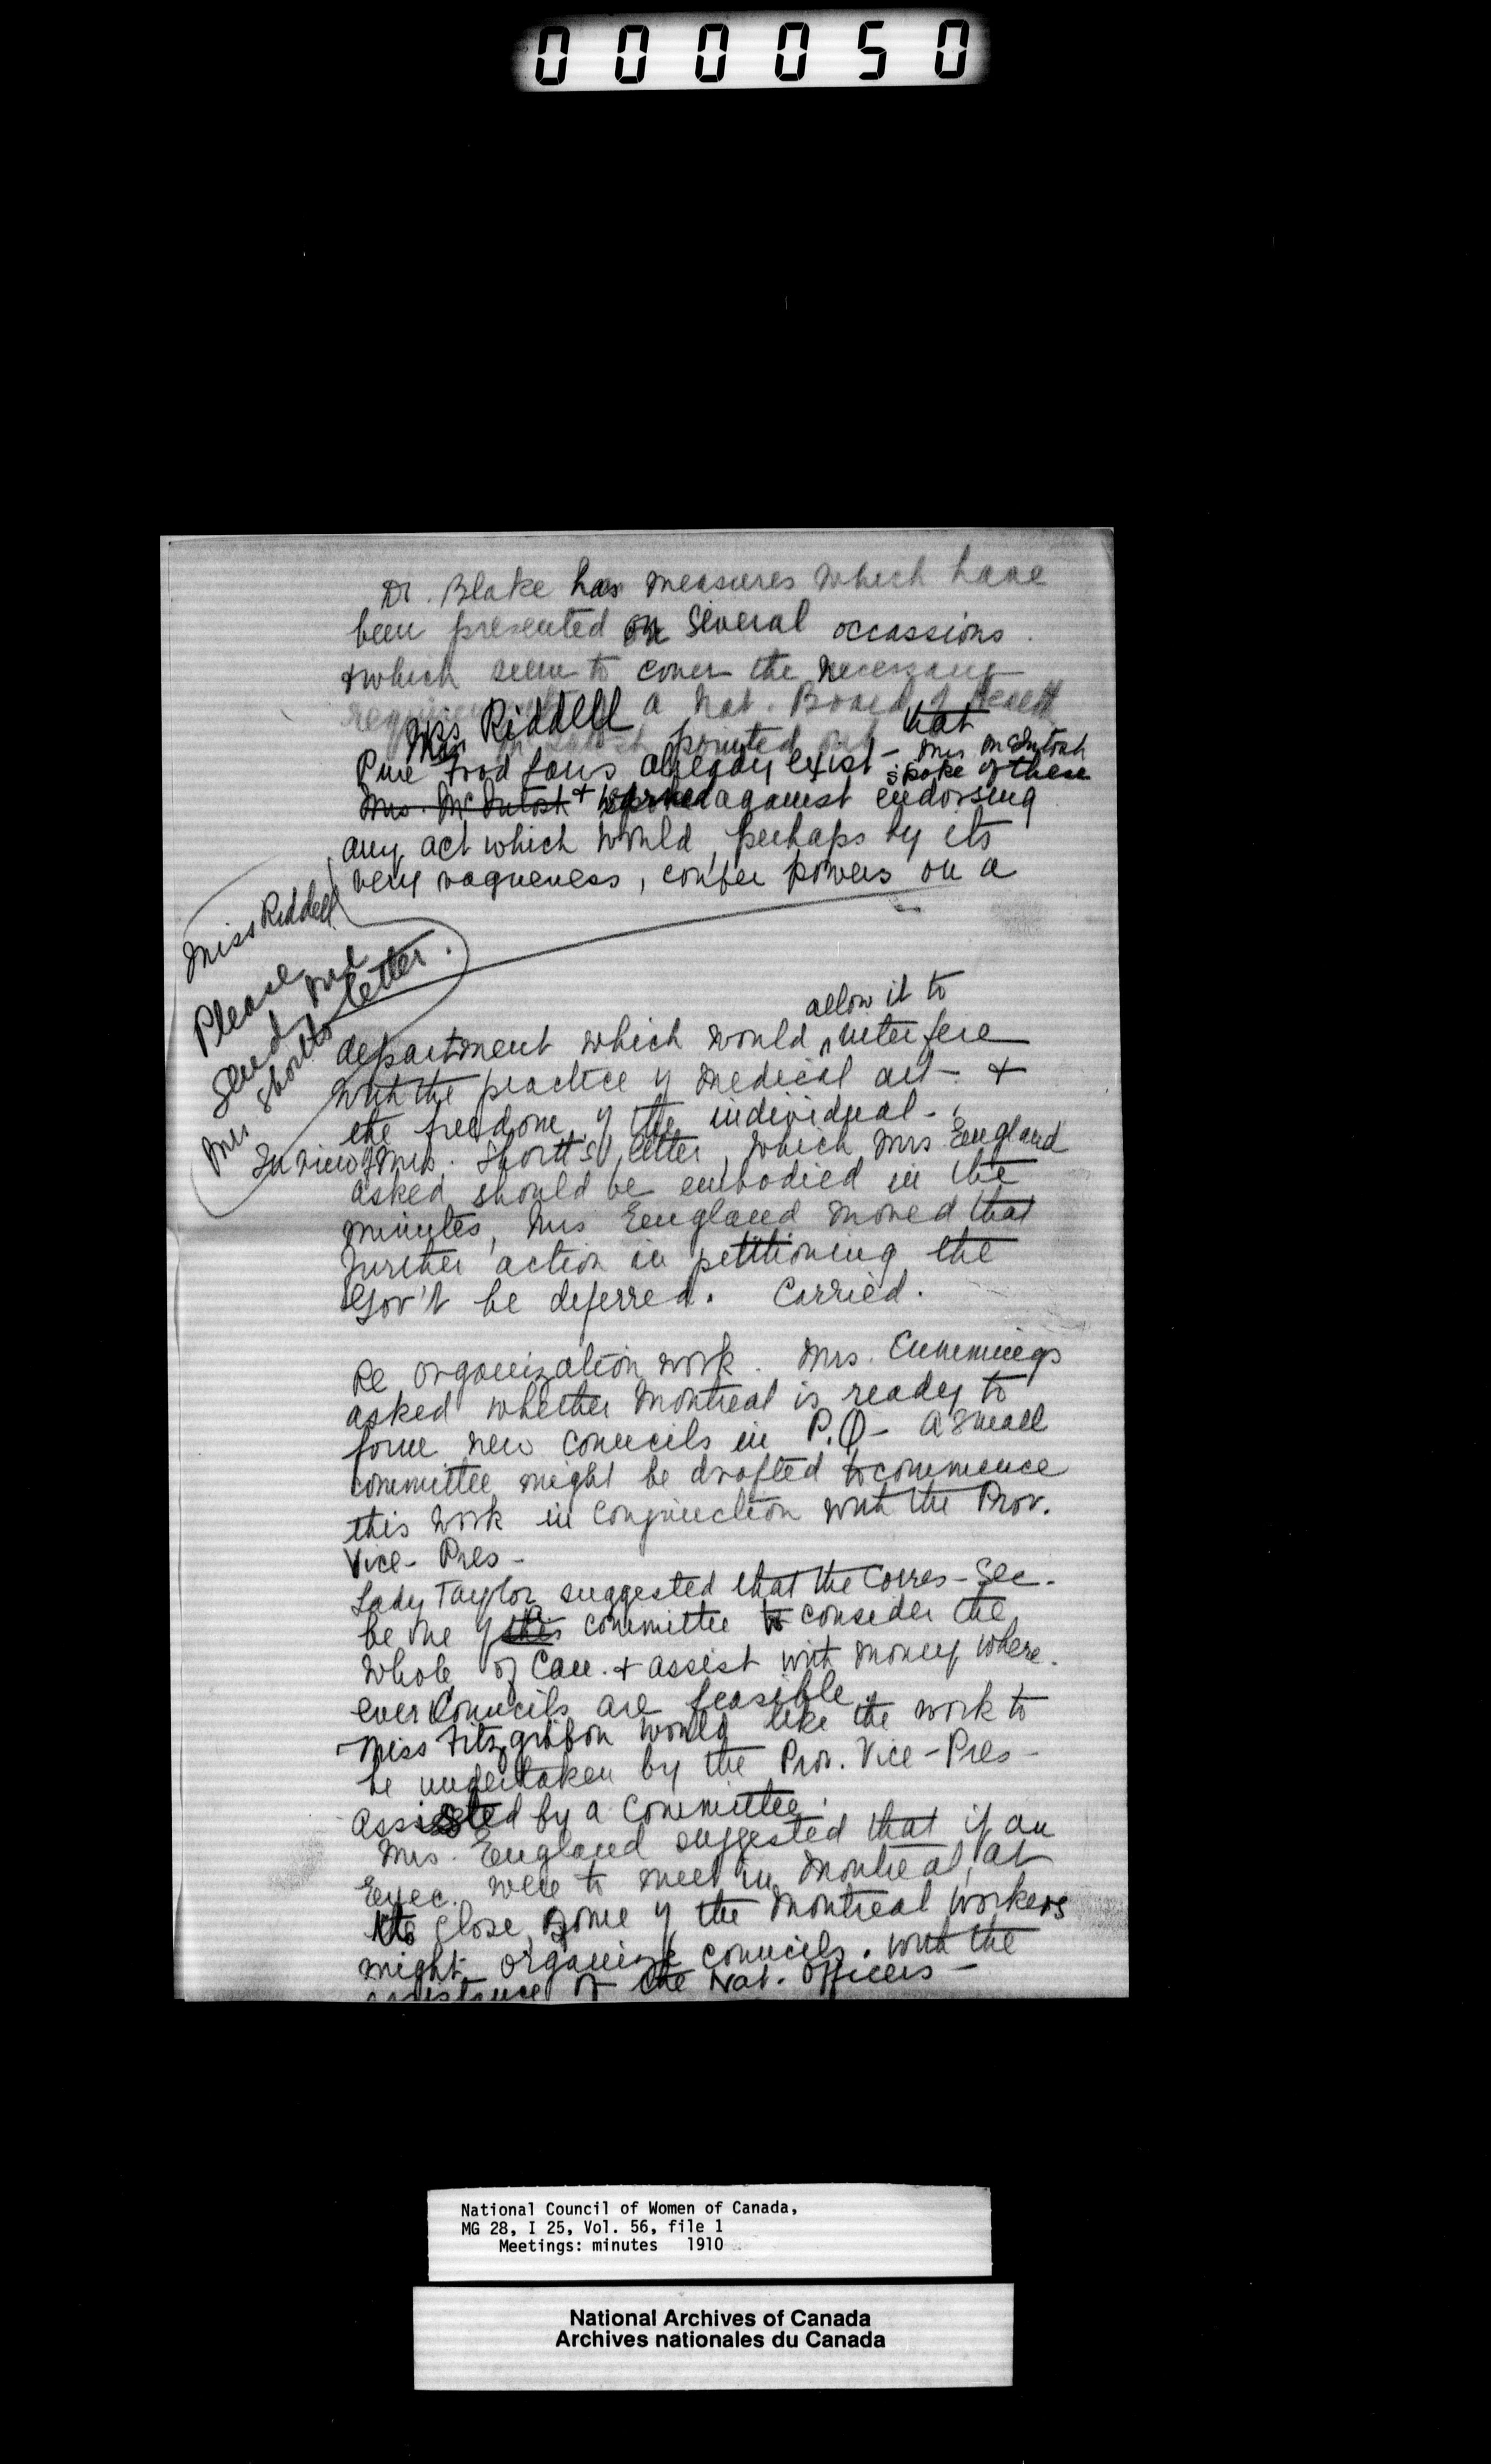 000050
Dr. Blake has measures which have
been presented on several occassions
& which seem to cover the necessary
a Nat. Board of Health
Miss Riddell pointed out that
Pure Food Laws already exist - Mrs McIntosh
spoke of these
Mrs. McIntosh & warned against endorsing
any act which would, perhaps by its
very vagueness, confer powers on a
Miss Riddell
Please
send me
Mrs Shortts letter.
allow it to
department which would interfere
with the practice of medical art - &
the freedom of the individual -
In view of Mrs. Shortt's letter, which Mrs England
asked should be embodied in the
minutes, Mrs England moved that
further action in petitioning the
Gov't be deferred. Carried.
Re organization work. Mrs. Cummings
asked whether Montreal is ready to
form new councils in P.Q - A small
committee might be drafted to commence
this work in conjunction with the Prov.
Vice-Pres -
Lady Taylor suggested that the Corres-Sec.
be one of a committee to consider the
whole of Can. & assist with money where-
ever Councils are feasible.
Miss Fitzgibbon would like the work to
be undertaken by the Prov. Vice-Pres -
assisted by a committee.
Mrs. England suggested that if an
Exec. were to meet in Montreal, at
its close, some of the Montreal workers
might organize councils. with the
assistance of the Nat. officers -
National Council of Women of Canada,
MG 28, I 25, Vol. 56, file 1
Meetings: minutes 1910
National Archives of Canada
Archives nationales du Canada